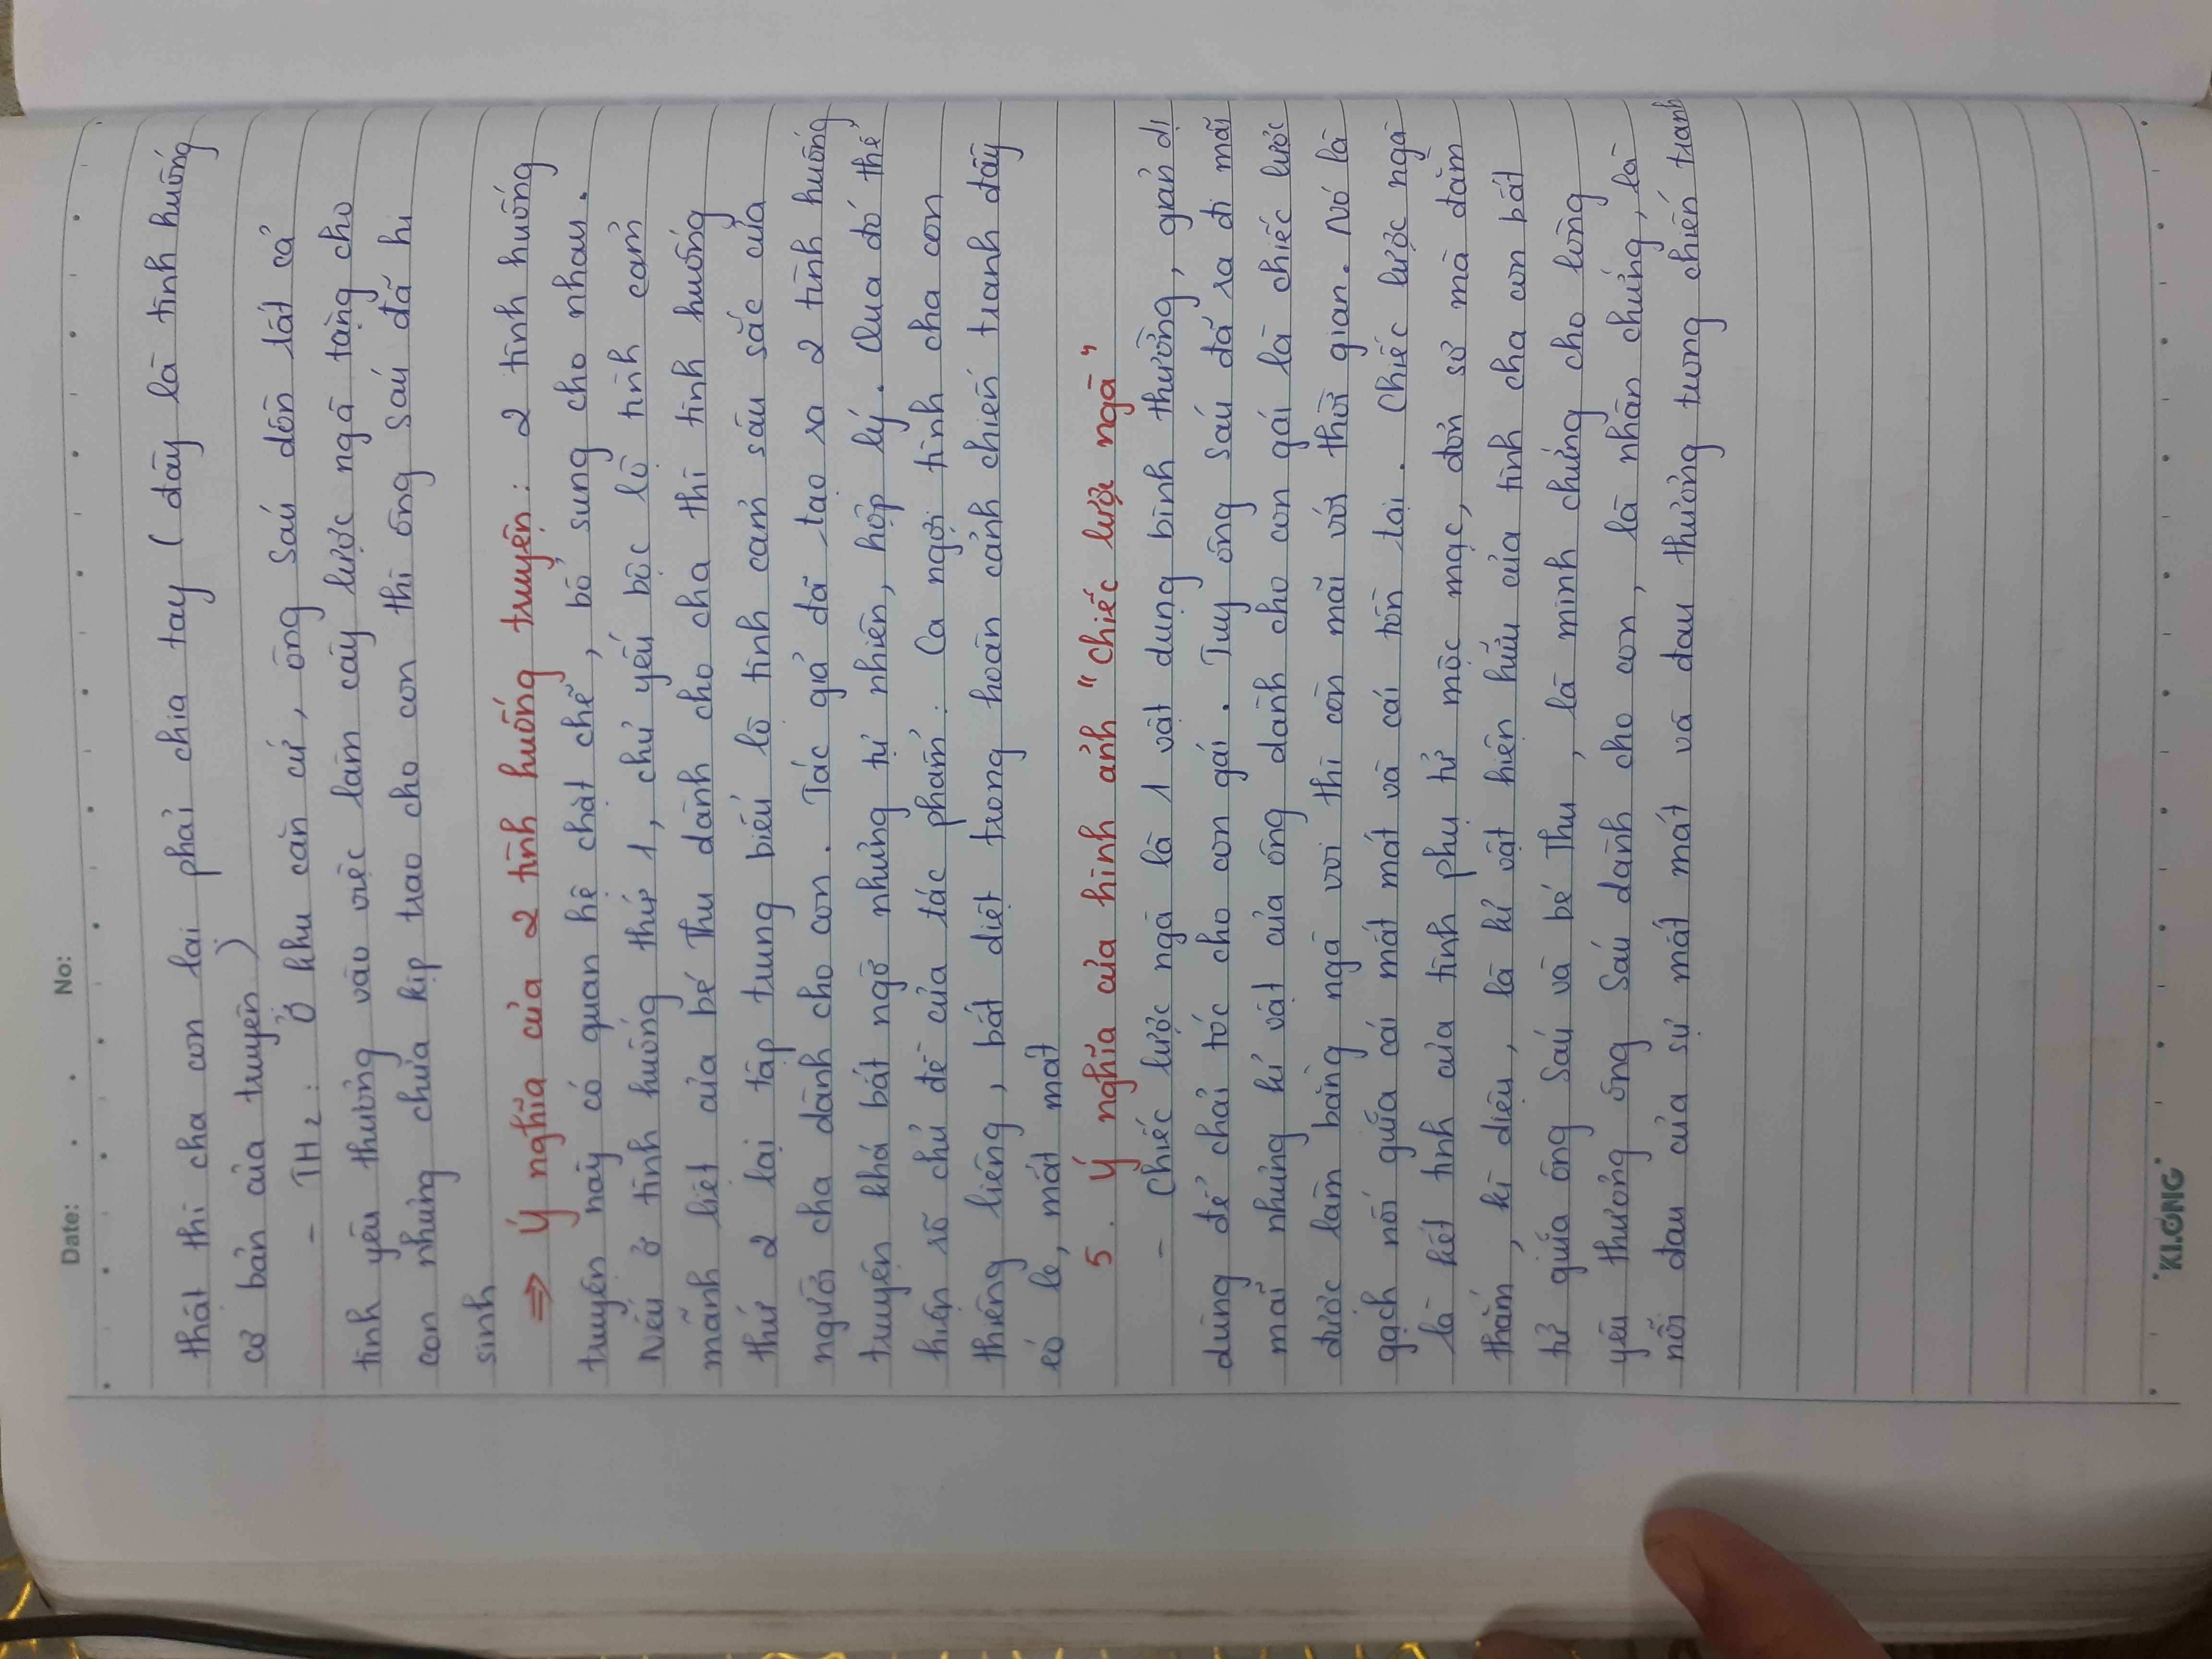 Date: . . No:
thật thì cha con lại phải chia tay ( đây là tình huống
cơ bản của truyện )
- TH2 : Ở khu căn cứ, ông Sáu dồn tất cả
tình yêu thương vào việc làm cây lược ngà tặng cho
con nhưng chưa kịp trao cho con thì ông Sáu đã hi
sinh
⇒ Ý nghĩa của 2 tình huống truyện : 2 tình huống
truyện này có quan hệ chặt chẽ, bổ sung cho nhau.
Nếu ở tình huống thứ 1, chủ yếu bộc lộ tình cảm
mãnh liệt của bé Thu dành cho cha thì tình huống
thứ 2 lại tập trung biểu lộ tình cảm sâu sắc của
người cha dành cho con. Tác giả đã tạo ra 2 tình huống
truyện khá bất ngờ nhưng tự nhiên, hợp lý. Qua đó thể
hiện rõ chủ đề của tác phẩm : Ca ngợi tình cha con
thiêng liêng, bất diệt trong hoàn cảnh chiến tranh đầy
éo le, mất mát
5. Ý nghĩa của hình ảnh "chiếc lược ngà"
- Chiếc lược ngà là 1 vật dụng bình thường, giản dị
dùng để chải tóc cho con gái. Tuy ông Sáu đã ra đi mãi
mãi nhưng kỉ vật của ông dành cho con gái là chiếc lược
được làm bằng ngà voi thì còn mãi với thời gian. Nó là
gạch nối giữa cái mất mát và cái tồn tại. Chiếc lược ngà
là kết tinh của tình phụ tử mộc mạc, đơn sơ mà đằm
thắm, kì diệu, là kỉ vật hiện hữu của tình cha con bất
tử giữa ông Sáu và bé Thu, là minh chứng cho lòng
yêu thương ông Sáu dành cho con, là nhân chứng, là
nỗi đau của sự mất mát và đau thương trong chiến tranh
"KLONG"